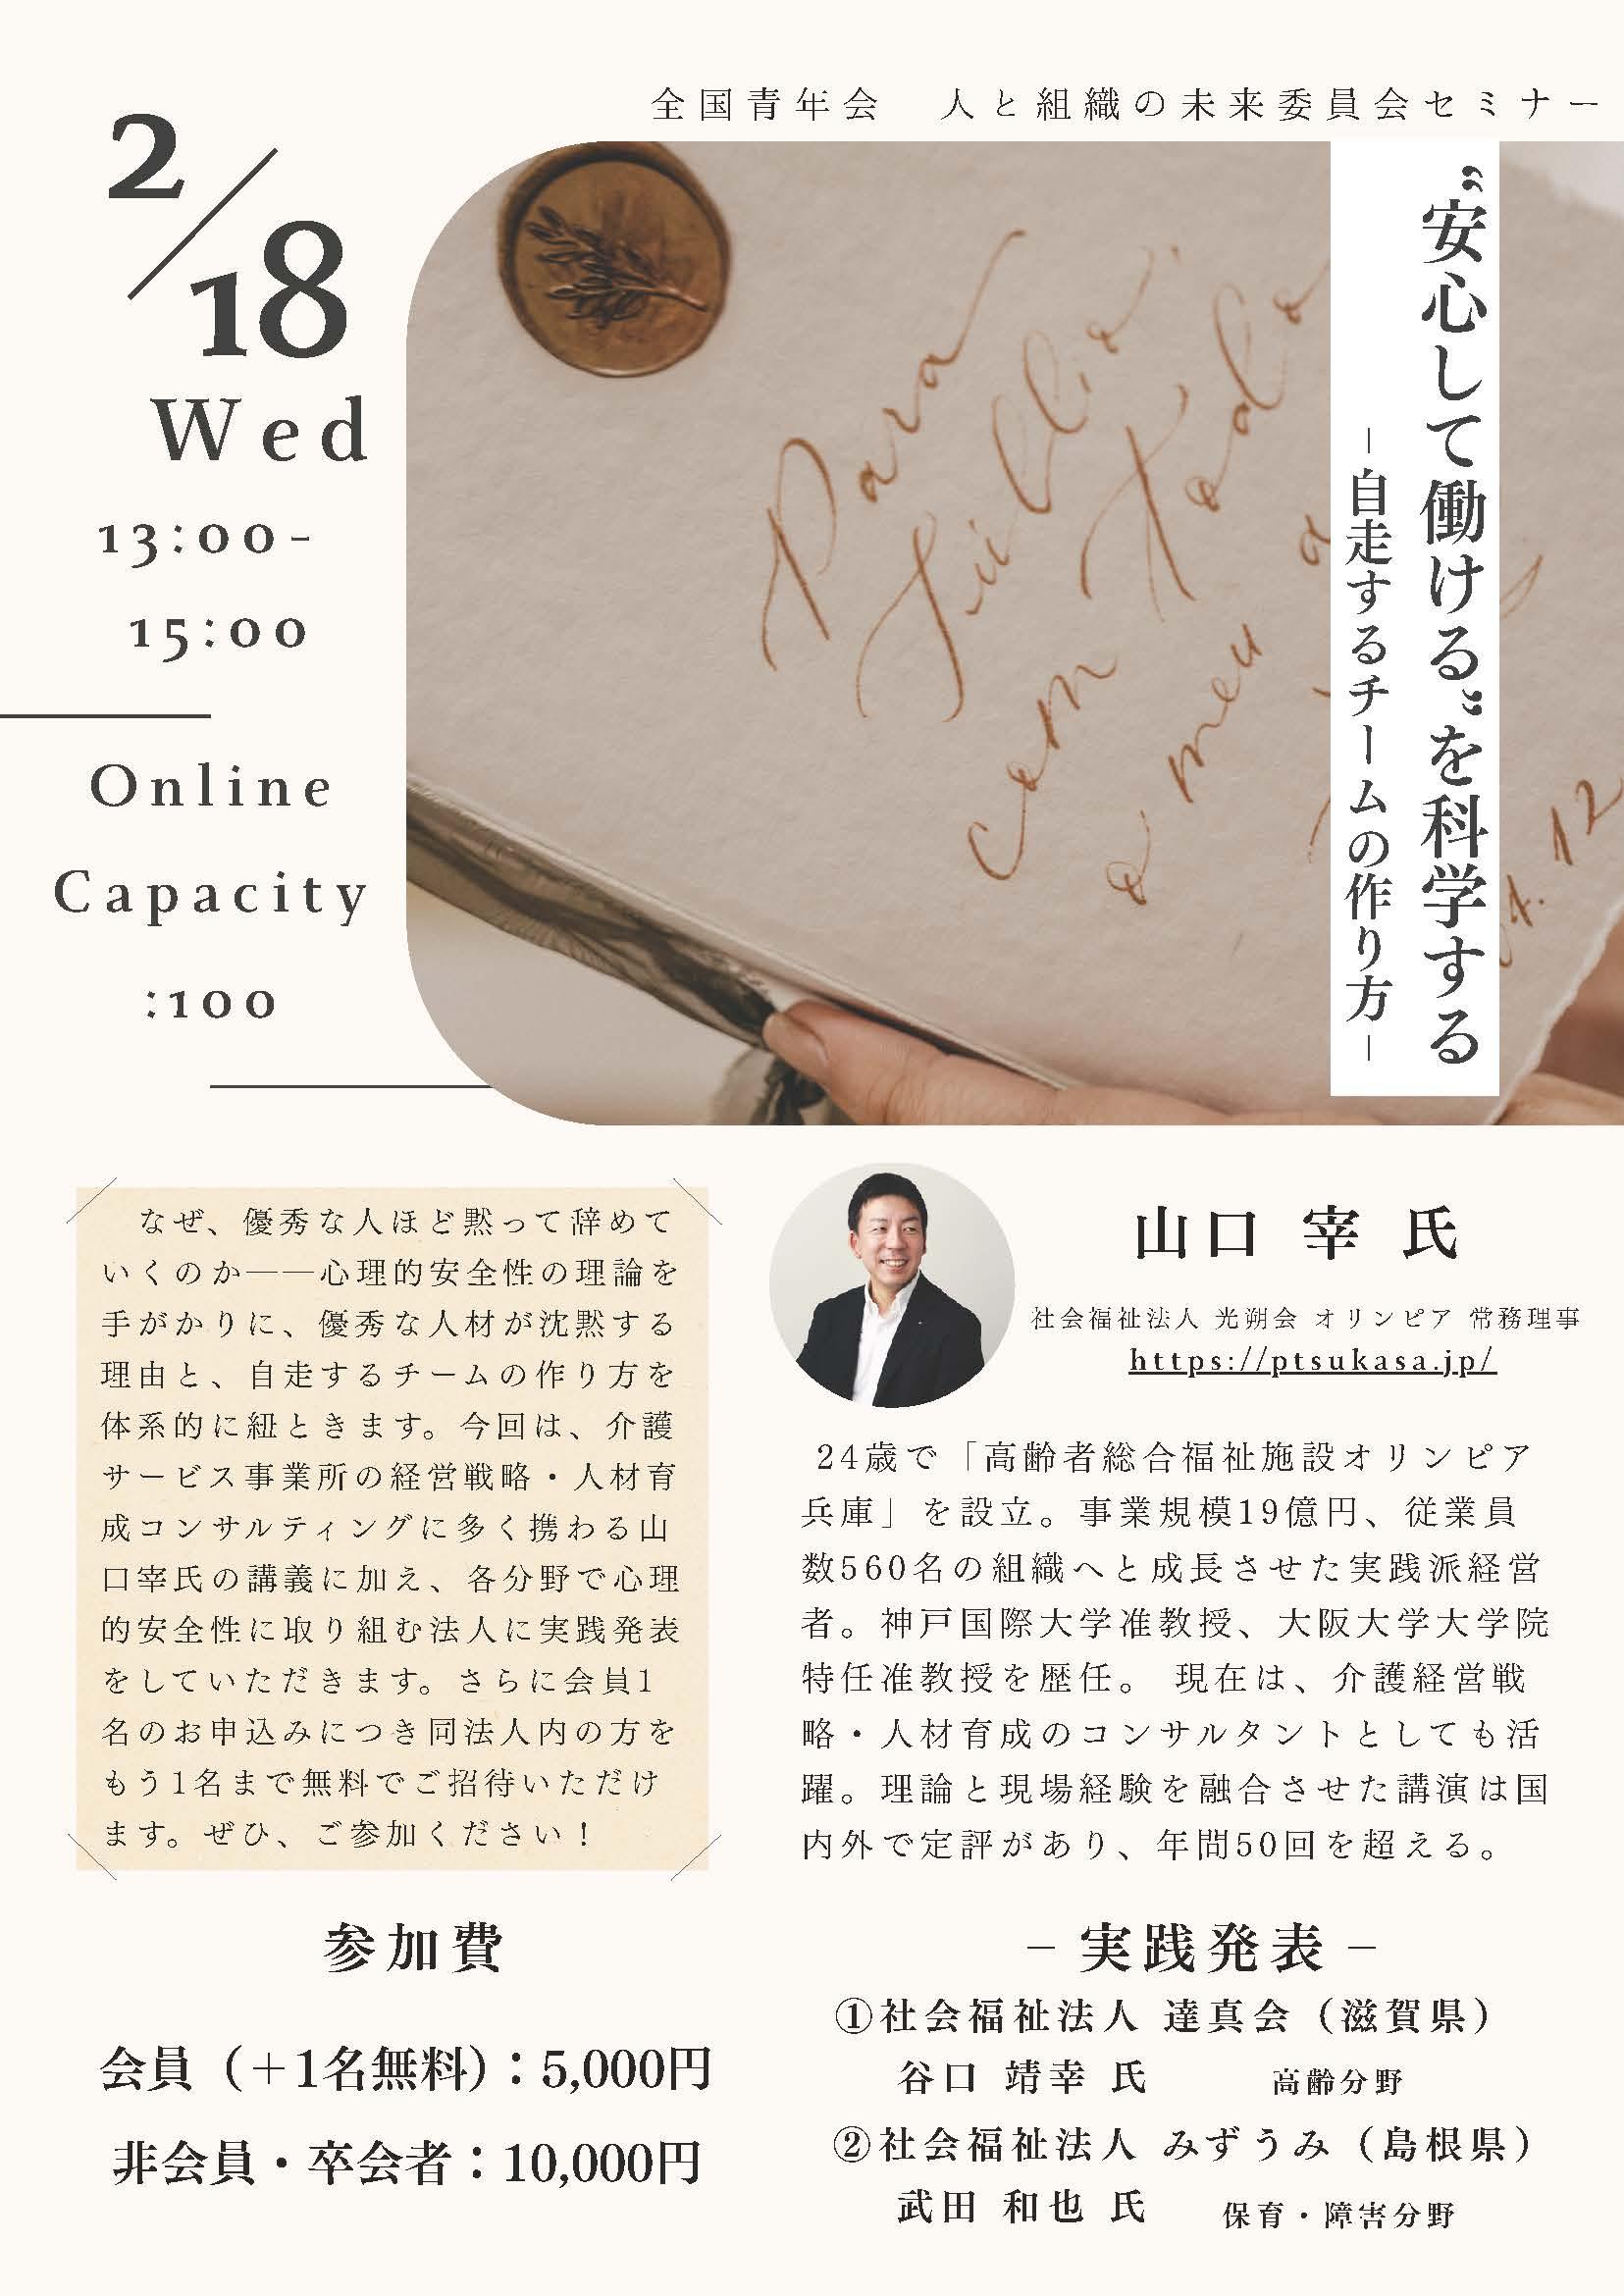 全国青年会　人と組織の未来委員会セミナー
2/18
Wed
13:00-
15:00
Online
Capacity
:100
"安心して働ける"を科学する
–自走するチームの作り方–
Para
com
a meu
12
なぜ、優秀な人ほど黙って辞めて
いくのか――心理的安全性の理論を
手がかりに、優秀な人材が沈黙する
理由と、自走するチームの作り方を
体系的に紐ときます。今回は、介護
サービス事業所の経営戦略・人材育
成コンサルティングに多く携わる山
口宰氏の講義に加え、各分野で心理
的安全性に取り組む法人に実践発表
をしていただきます。さらに会員1
名のお申込みにつき同法人内の方を
もう1名まで無料でご招待いただけ
ます。ぜひ、ご参加ください！
山口 宰 氏
社会福祉法人 光朔会 オリンピア 常務理事
https://ptsukasa.jp/
24歳で「高齢者総合福祉施設オリンピア
兵庫」を設立。事業規模19億円、従業員
数560名の組織へと成長させた実践派経営
者。神戸国際大学准教授、大阪大学大学院
特任准教授を歴任。 現在は、介護経営戦
略・人材育成のコンサルタントとしても活
躍。理論と現場経験を融合させた講演は国
内外で定評があり、年間50回を超える。
参加費
会員（＋1名無料）：5,000円
非会員・卒会者：10,000円
– 実践発表 –
①社会福祉法人 達真会（滋賀県）
谷口 靖幸 氏 高齢分野
②社会福祉法人 みずうみ（島根県）
武田 和也 氏 保育・障害分野